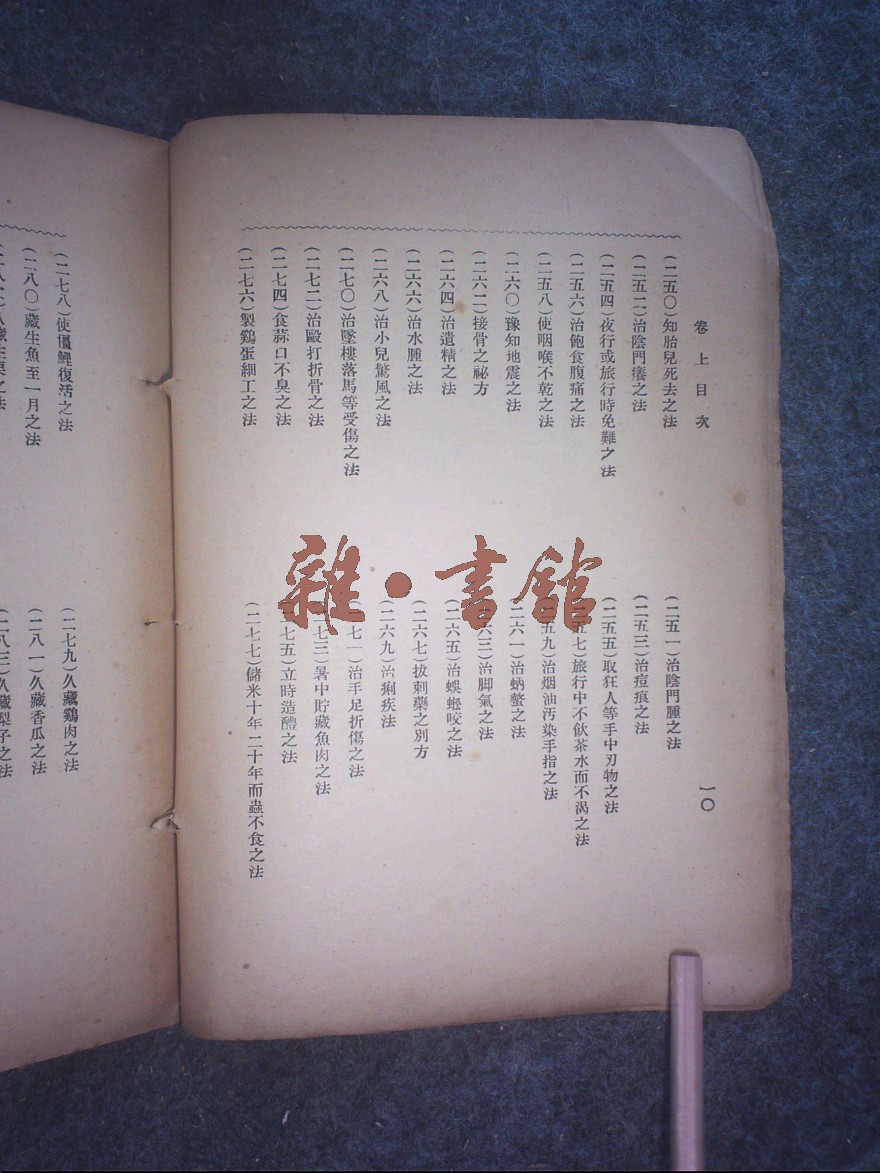 卷上目次
一〇
(二五〇)知胎兒死去之法
(二五一)治陰門腫之法
(二五二)治陰門癢之法
(二五三)治痘痕之法
(二五四)夜行或旅行時免難之法
(二五五)取狂人等手中刃物之法
(二五六)治飽食腹痛之法
五七)旅行中不飲茶水而不渴之法
(二五八)使咽喉不乾之法
五九)治烟油污染手指之法
(二六〇)豫知地震之法
(二六一)治蚋螫之法
(二六二)接骨之祕方
六三)治脚氣之法
(二六四)治遺精之法
(二六五)治蜈蚣咬之法
(二六六)治水腫之法
(二六七)拔刺藥之別方
(二六八)治小兒驚風之法
(二六九)治痢疾法
(二七〇)治墜樓落馬等受傷之法
七一)治手足折傷之法
(二七二)治毆打折骨之法
七三)暑中貯藏魚肉之法
(二七四)食蒜口不臭之法
七五)立時造醴之法
(二七六)製鷄蛋細工之法
(二七七)儲米十年二十年而蟲不食之法
(二七八)使僵鯉復活之法
(二七九)久藏鷄肉之法
(二八〇)藏生魚至一月之法
(二八一)久藏香瓜之法
(二八二)久藏生栗之法
(二八三)久藏梨子之法
雜·書館